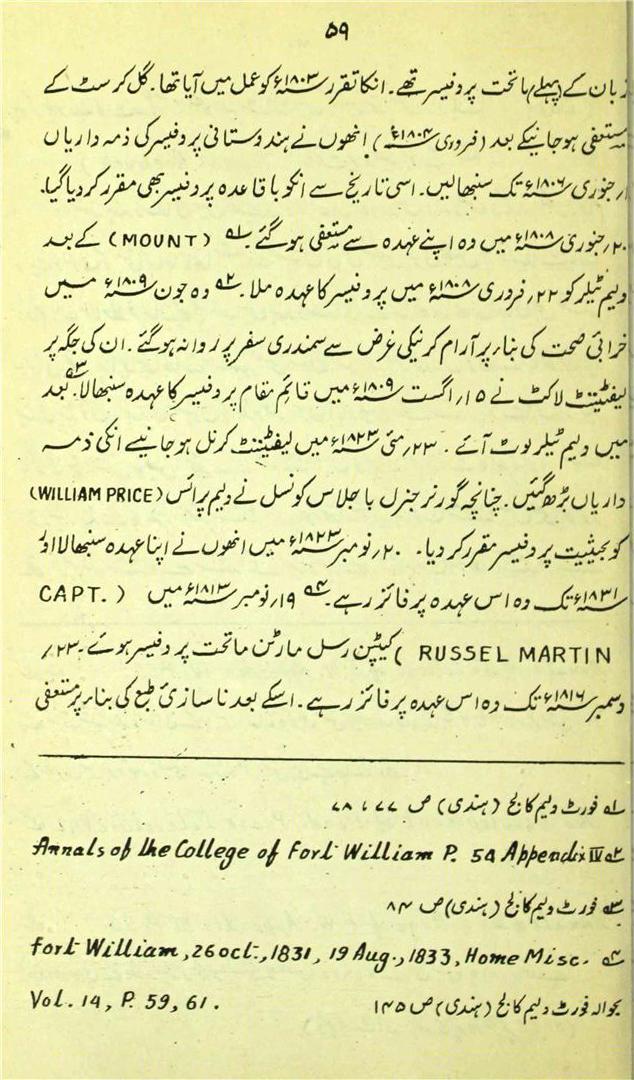 ۵۹
زبان کے (پہلے) ماتحت پروفیسر تھے۔ انکا تقرر ۱۸۰۳ء کو عمل میں آیا تھا۔ گل کرسٹ کے
مستعفی ہو جانیکے بعد (فروری ۱۸۰۴ء) انھوں نے ہندوستانی پروفیسر کی ذمہ داریاں
۱؍جنوری ۱۸۰۶ء تک سنبھالیں۔ اسی تاریخ سے انکو باقاعدہ پروفیسر بھی مقرر کر دیا گیا۔
۲۰؍جنوری ۱۸۰۸ء میں وہ اپنے عہدہ سے مستعفی ہوگئے۔ ۱؎ (MOUNT) کے بعد
ولیم ٹیلر کو ۲۲؍فروری ۱۸۰۸ء میں پروفیسر کا عہدہ ملا۔ ۲؎ وہ جون ۱۸۰۹ء میں
خرابئ صحت کی بناء پر آرام کرنیکی غرض سے سمندری سفر پر روانہ ہوگئے۔ ان کی جگہ پر
لیفٹیننٹ لاکٹ نے ۱۵؍اگست ۱۸۰۹ء میں قائم مقام پروفیسر کا عہدہ سنبھالا۔ ۳؎ بعد
میں ولیم ٹیلر لوٹ آئے۔ ۲۳؍مئی ۱۸۲۳ء میں لیفٹیننٹ کرنل ہو جانیسے انکی ذمہ
داریاں بڑھ گئیں۔ چنانچہ گورنر جنرل باجلاس کونسل نے ولیم پرائس (WILLIAM PRICE)
کو بحیثیت پروفیسر مقرر کر دیا۔ ۲۰؍نومبر ۱۸۲۳ء میں انھوں نے اپنا عہدہ سنبھالا اور
۱۸۳۱ء تک وہ اس عہدہ پر فائز رہے۔ ۴؎ ۱۹؍نومبر ۱۸۱۳ء میں (CAPT.
RUSSEL MARTIN) کیپٹن رسل مارٹن ماتحت پروفیسر ہوئے۔ ۲۳؍
دسمبر ۱۸۱۶ء تک وہ اس عہدہ پر فائز رہے۔ اسکے بعد ناسازئ طبع کی بناء پر مستعفی
۱؎ فورٹ ولیم کالج (ہندی) ص ۷۷، ۷۸
۲؎ Annals of the College of Fort William P. 54 Appendix IV
۳؎ فورٹ ولیم کالج (ہندی) ص ۸۴
۴؎ Fort William, 26 oct., 1831, 19 Aug., 1833, Home Misc.
Vol. 14, P. 59, 61. بحوالہ فورٹ ولیم کالج (ہندی) ص ۱۴۵